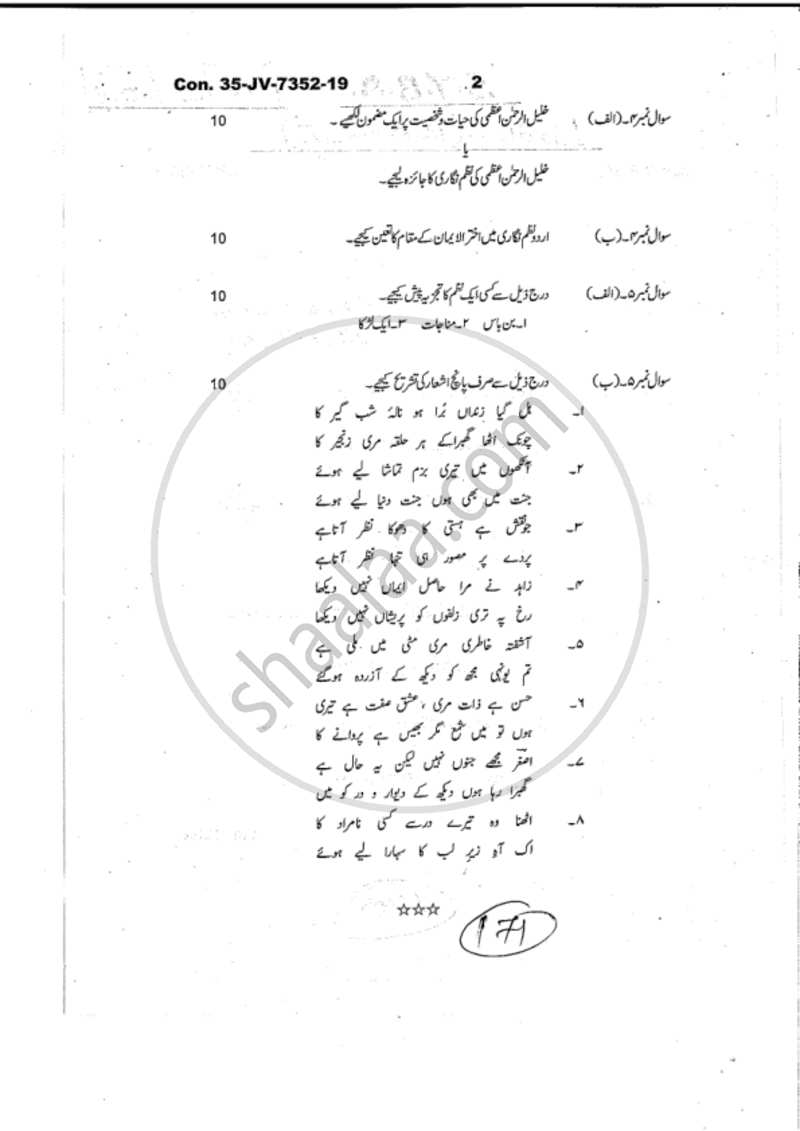 Con. 35-JV-7352-19 2
سوال نمبر۴۔(الف) خلیل الرحمٰن اعظمی کی حیات و شخصیت پر ایک مضمون لکھیے۔ 10
یا
خلیل الرحمٰن اعظمی کی نظم نگاری کا جائزہ لیجیے۔
سوال نمبر۴۔(ب) اردو نظم نگاری میں اختر الایمان کے مقام کا تعین کیجیے۔ 10
سوال نمبر۵۔(الف) درج ذیل سے کسی ایک نظم کا تجزیہ پیش کیجیے۔ 10
۱۔بن باس ۲۔مناجات ۳۔ایک لڑکا
سوال نمبر۵۔(ب) درج ذیل سے صرف پانچ اشعار کی تشریح کیجیے۔ 10
۱۔ ہل گیا زنداں بُرا ہو نالۂ شب گیر کا
چونک اٹھا گھبرا کے ہر حلقہ مری زنجیر کا
۲۔ آنکھوں میں تیری بزم تماشا لیے ہوئے
جنت میں بھی ہوں جنت دنیا لیے ہوئے
۳۔ جو نقش ہے ہستی کا دھوکا نظر آتا ہے
پردے پر مصور ہی تنہا نظر آتا ہے
۴۔ زاہد نے مرا حاصل ایماں نہیں دیکھا
رخ پہ تری زلفوں کو پریشاں نہیں دیکھا
۵۔ آشفتہ خاطری مری مٹی میں ملی ہے
تم یونہی مجھ کو دیکھ کے آزردہ ہوگئے
۶۔ حسن ہے ذات مری ، عشق صفت ہے تیری
ہوں تو میں شمع مگر بھیس ہے پروانے کا
۷۔ اصغرؔ مجھے جنوں نہیں لیکن یہ حال ہے
گھبرا رہا ہوں دیکھ کے دیوار و در کو میں
۸۔ اٹھنا وہ تیرے در سے کسی نامراد کا
اک آہِ زیرِ لب کا سہارا لیے ہوئے
☆☆☆
171
shaalaa.com